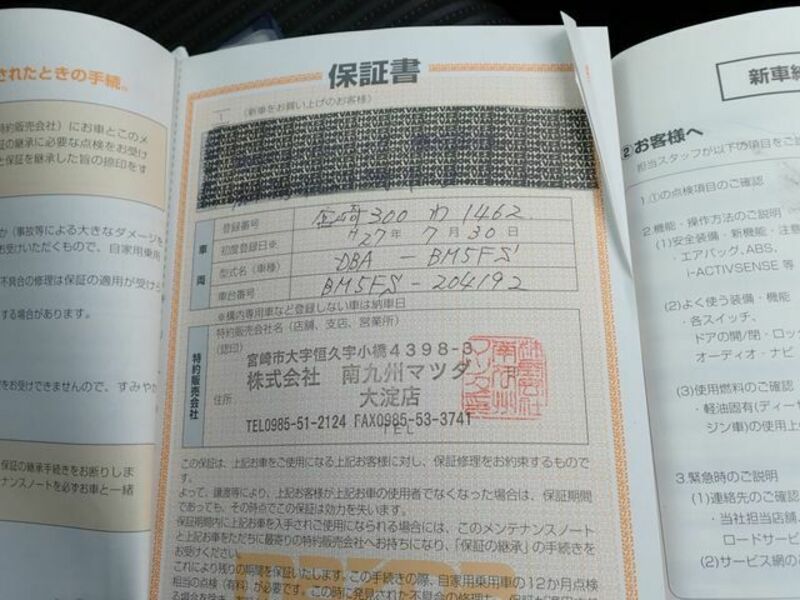 されたときの手続。
特約販売会社）にお車とこのメ
証の継承に必要な点検をお受け
と保証を継承した旨の捺印をす
か（事故等による大きなダメージを
お受けいただくもので、自家用乗用
不具合の修理は保証の適用が受けら
する場合があります。
をお受けできませんので、すみやか
保証の継承手続きをお断りしま
ナンスノートを必ずお車と一緒
保証書
（新車をお買い上げのお客様）
車両
登録番号 宮崎300 わ1462
初度登録日※ H27年 7月30日
型式名（車種） DBA - BM5FS
車台番号 BM5FS-204192
※構内専用車など登録しない車は納車日
特約販売会社
特約販売会社名（店舗、支店、営業所）
（認印）
宮崎市大字恒久字小橋４３９８-３
株式会社 南九州マツダ
住所
大淀店
TEL0985-51-2124 FAX0985-53-3741
TEL
この保証は、上記お車をご使用になる上記お客様に対し、保証修理をお約束するもので
す。
よって、譲渡等により、上記お客様が上記お車の使用者でなくなった場合は、保証期間
であっても、その時点でこの保証は効力を失います。
保証期間内に上記お車を入手されご使用になられる場合には、このメンテナンスノート
と上記お車をただちに最寄りの特約販売会社へお持ちになり、「保証の継承」の手続きを
お受けください。
これにより残りの期間を保証いたします。この手続きの際、自家用乗用車の12か月点検
相当の点検（有料）が必要です。この時に発見された不具合の修理も、保証が適用され
新車納
②お客様へ
担当スタッフが以下の項目をご説
1.①の点検項目のご確認
2.機能・操作方法のご説明
(1)安全装備・新機能・注意
・エアバッグ､ABS､
i-ACTIVSENSE 等
(2)よく使う装備・機能
・各スイッチ、
ドアの開/閉・ロック
オーディオ・ナビ
(3)使用燃料のご確認
・軽油固有(ディーゼ
ジン車)の使用上の
3.緊急時のご説明
(1)連絡先のご確認
・当社担当店舗
ロードサービ
(2)サービス網のご